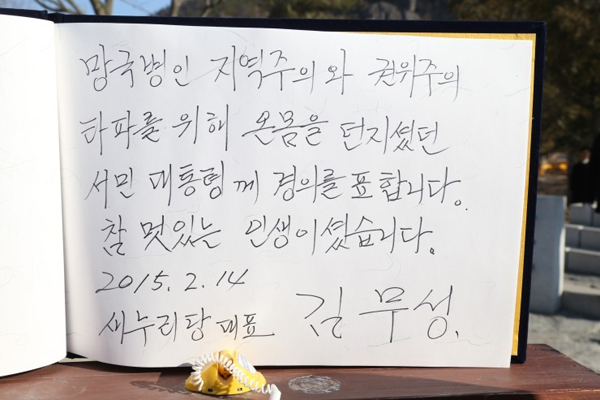 망국병인 지역주의와 권위주의
타파를 위해 온몸을 던지셨던
서민 대통령께 경의를 표합니다.
참 멋있는 인생이셨습니다.
2015. 2. 14
새누리당 대표 김무성.